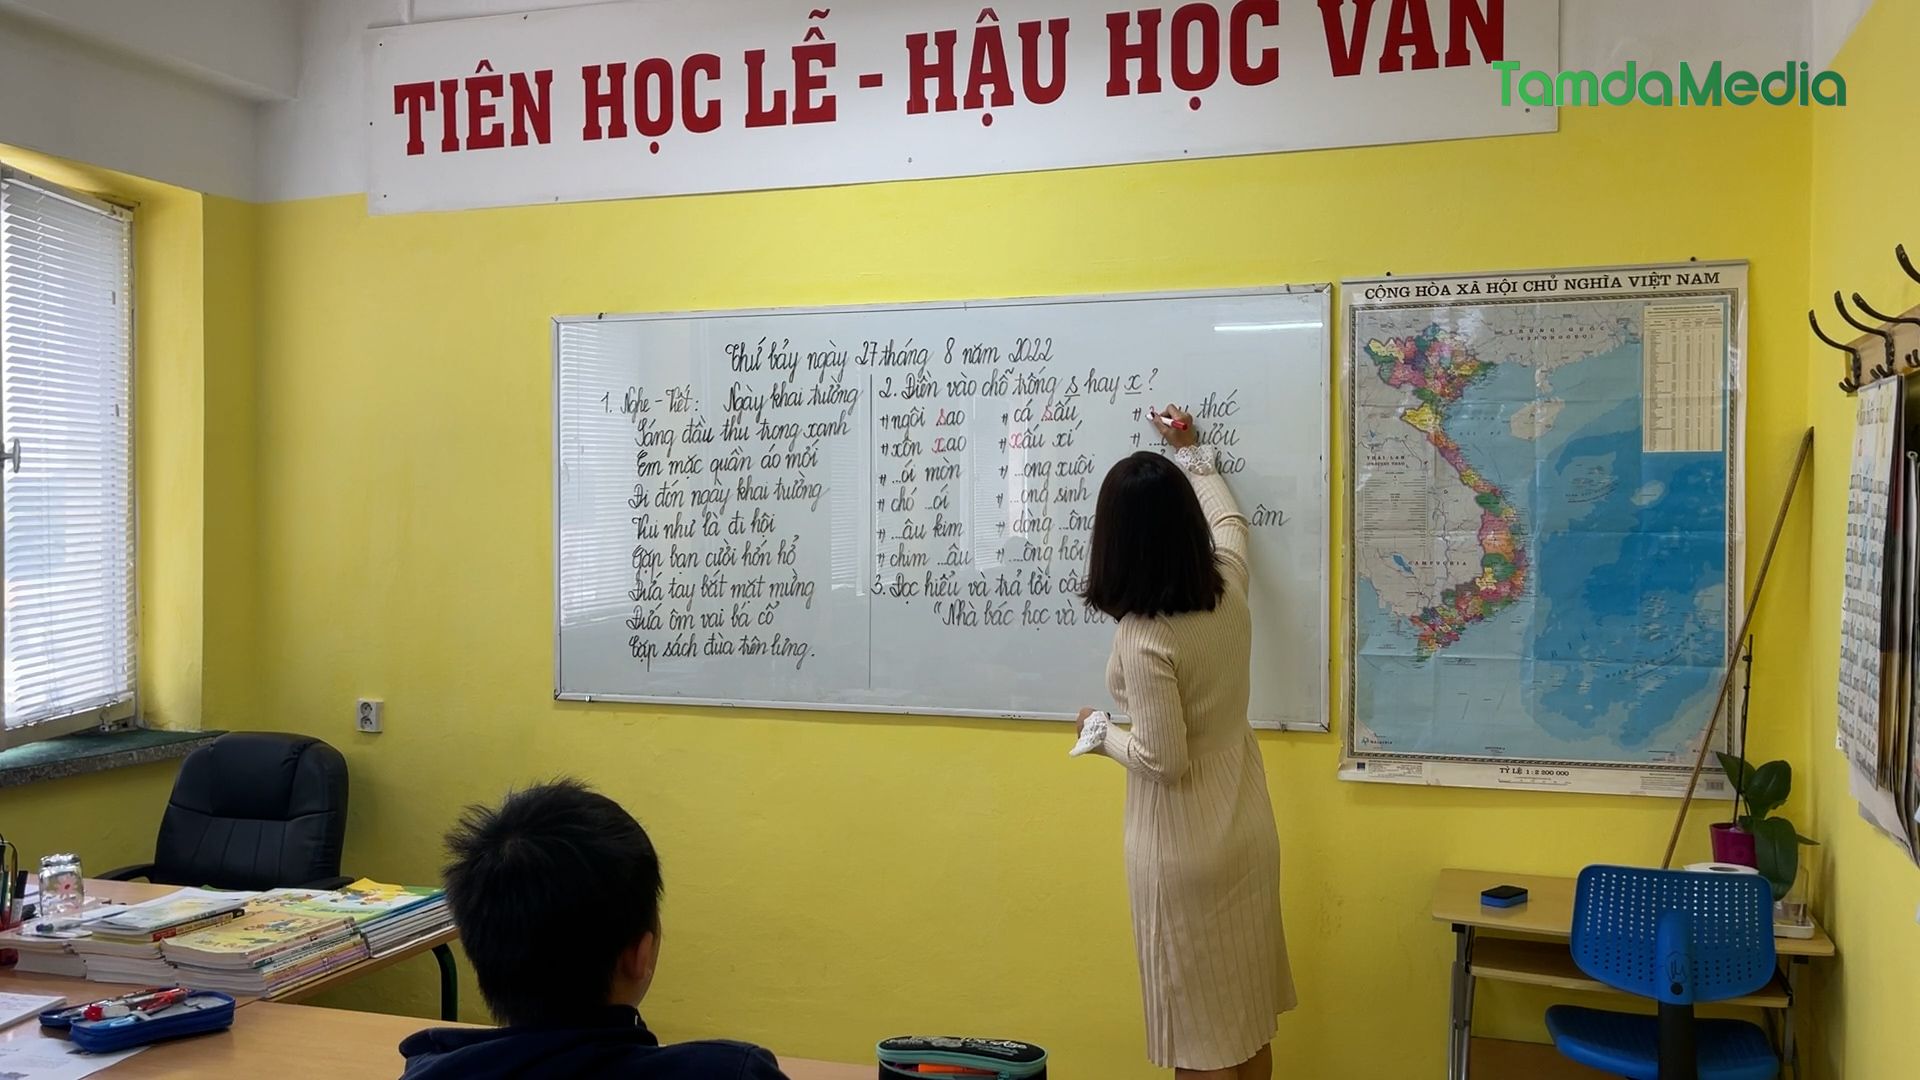 TIÊN HỌC LỄ - HẬU HỌC VĂN
TamdaMedia
CỘNG HÒA XÃ HỘI CHỦ NGHĨA VIỆT NAM
Thứ bảy ngày 27 tháng 8 năm 2022
1. Nghe - Viết: Ngày khai trường
Sáng đầu thu trong xanh
Em mặc quần áo mới
Đi đón ngày khai trường
Vui như là đi hội
Gặp bạn cười hớn hở
Đứa tay bắt mặt mừng
Đứa ôm vai bá cổ
Cặp sách đùa trên lưng.
2. Điền vào chỗ trống s hay x?
ngôi sao
xôn xao
...ói mòn
chó ...ói
...âu kim
chim ...âu
cá sấu
xấu xí
...ong xuôi
...ong sinh
dòng ...ông
...ông hỏi
thóc
hào
...âm
3. Đọc hiểu và trả lời
"Nhà bác học và
TRUNG QUỐC
THÁI LAN
CAMPUCHIA
TỶ LỆ 1 : 2 200 000